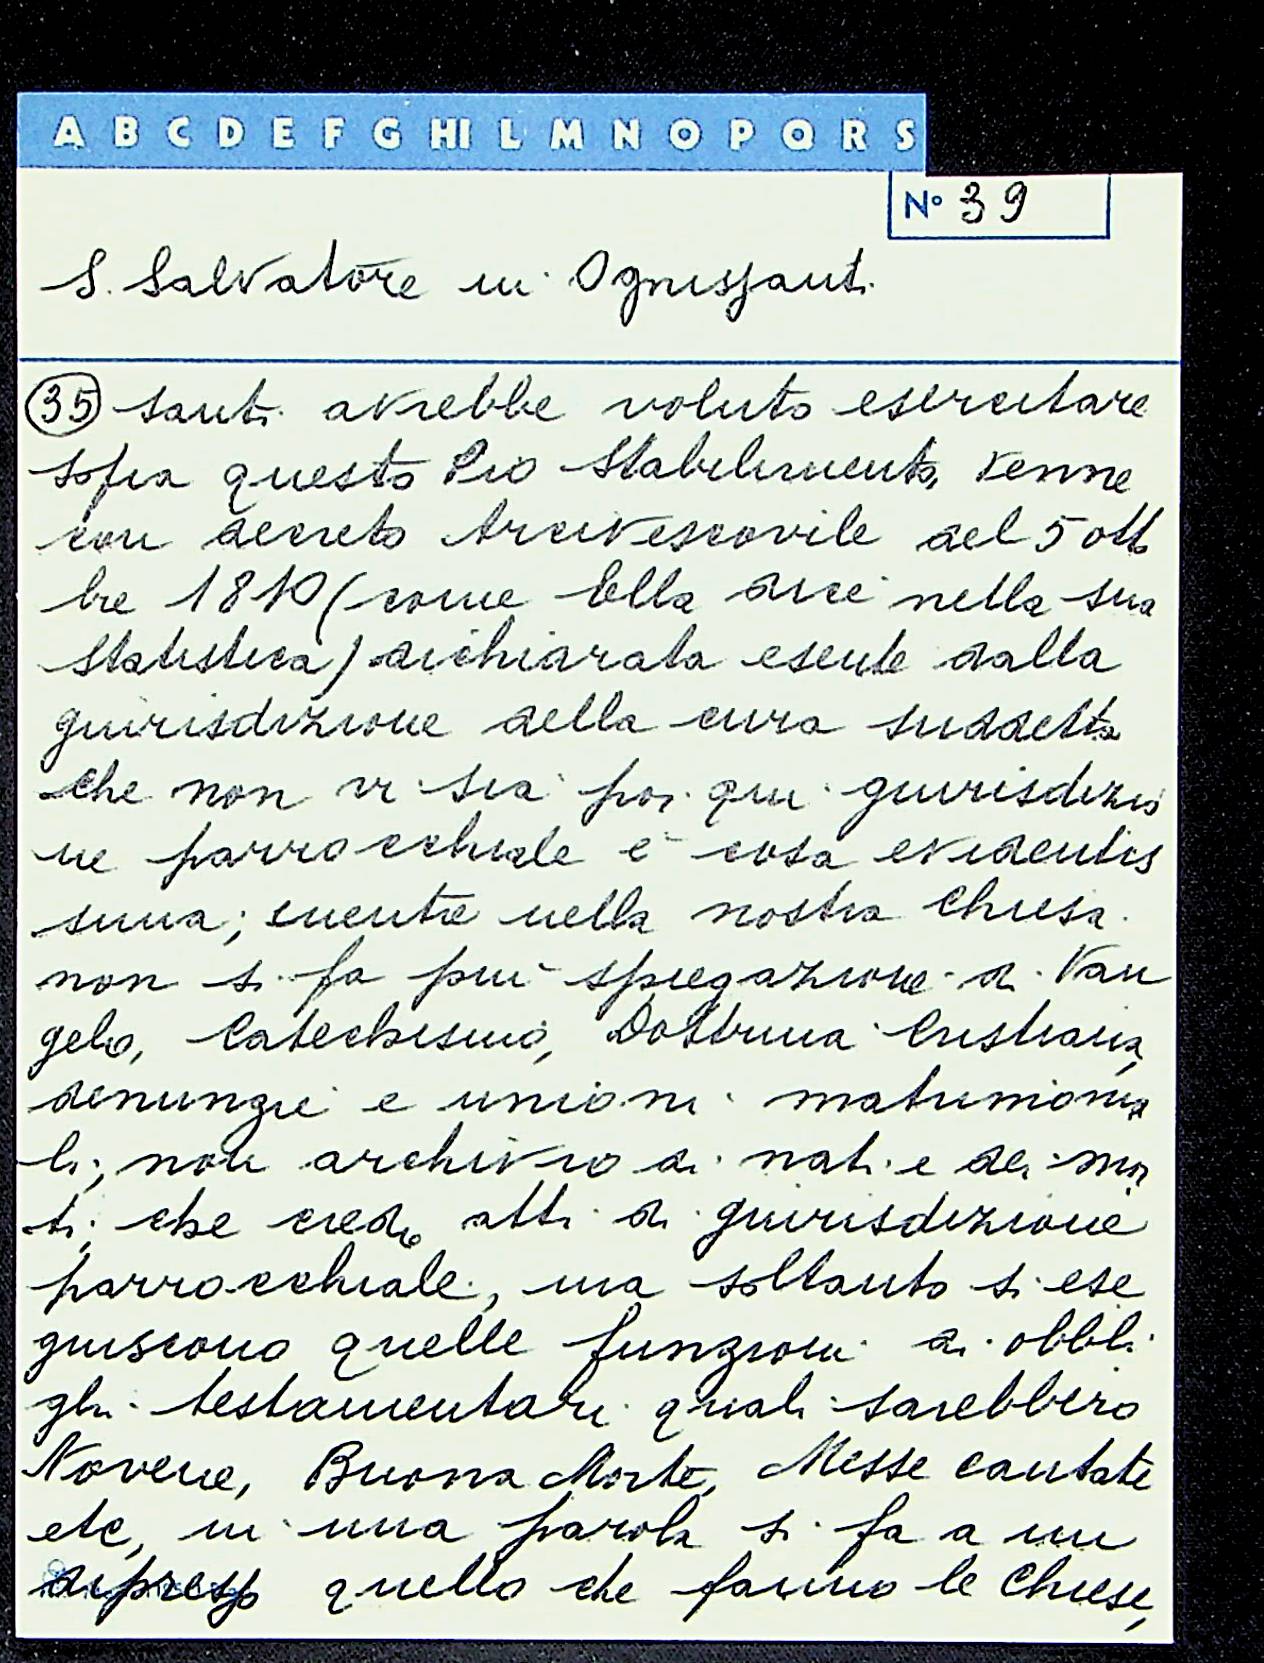 A B C D E F G HI L M N O P Q R S
N° 39
S. Salvatore in Ognissanti
35 santi avrebbe voluto esercitare
sopra questo Pio Stabilimento, venne
con decreto Arcivescovile del 5 otto
bre 1810 (come Ella dice nella sua
Statistica) dichiarata esente dalla
giurisdizione della cura suddetta
che non vi sia poi qui giurisdizio
ne parrocchiale è cosa evidentis
sima; mentre nella nostra Chiesa
non si fa più spiegazione di Van
gelo, Catechismo, Dottrina Cristiana,
denunzie e unioni matrimonia
li, non archivio di nati e dei mor
ti, che credo atti di giurisdizione
parrocchiale, ma soltanto si ese
guiscono quelle funzioni di obbli
ghi testamentari quali sarebbero
Novene, Buona Morte, Messe cantate
etc, in una parola si fa a un
dipresso quello che fanno le Chiese,